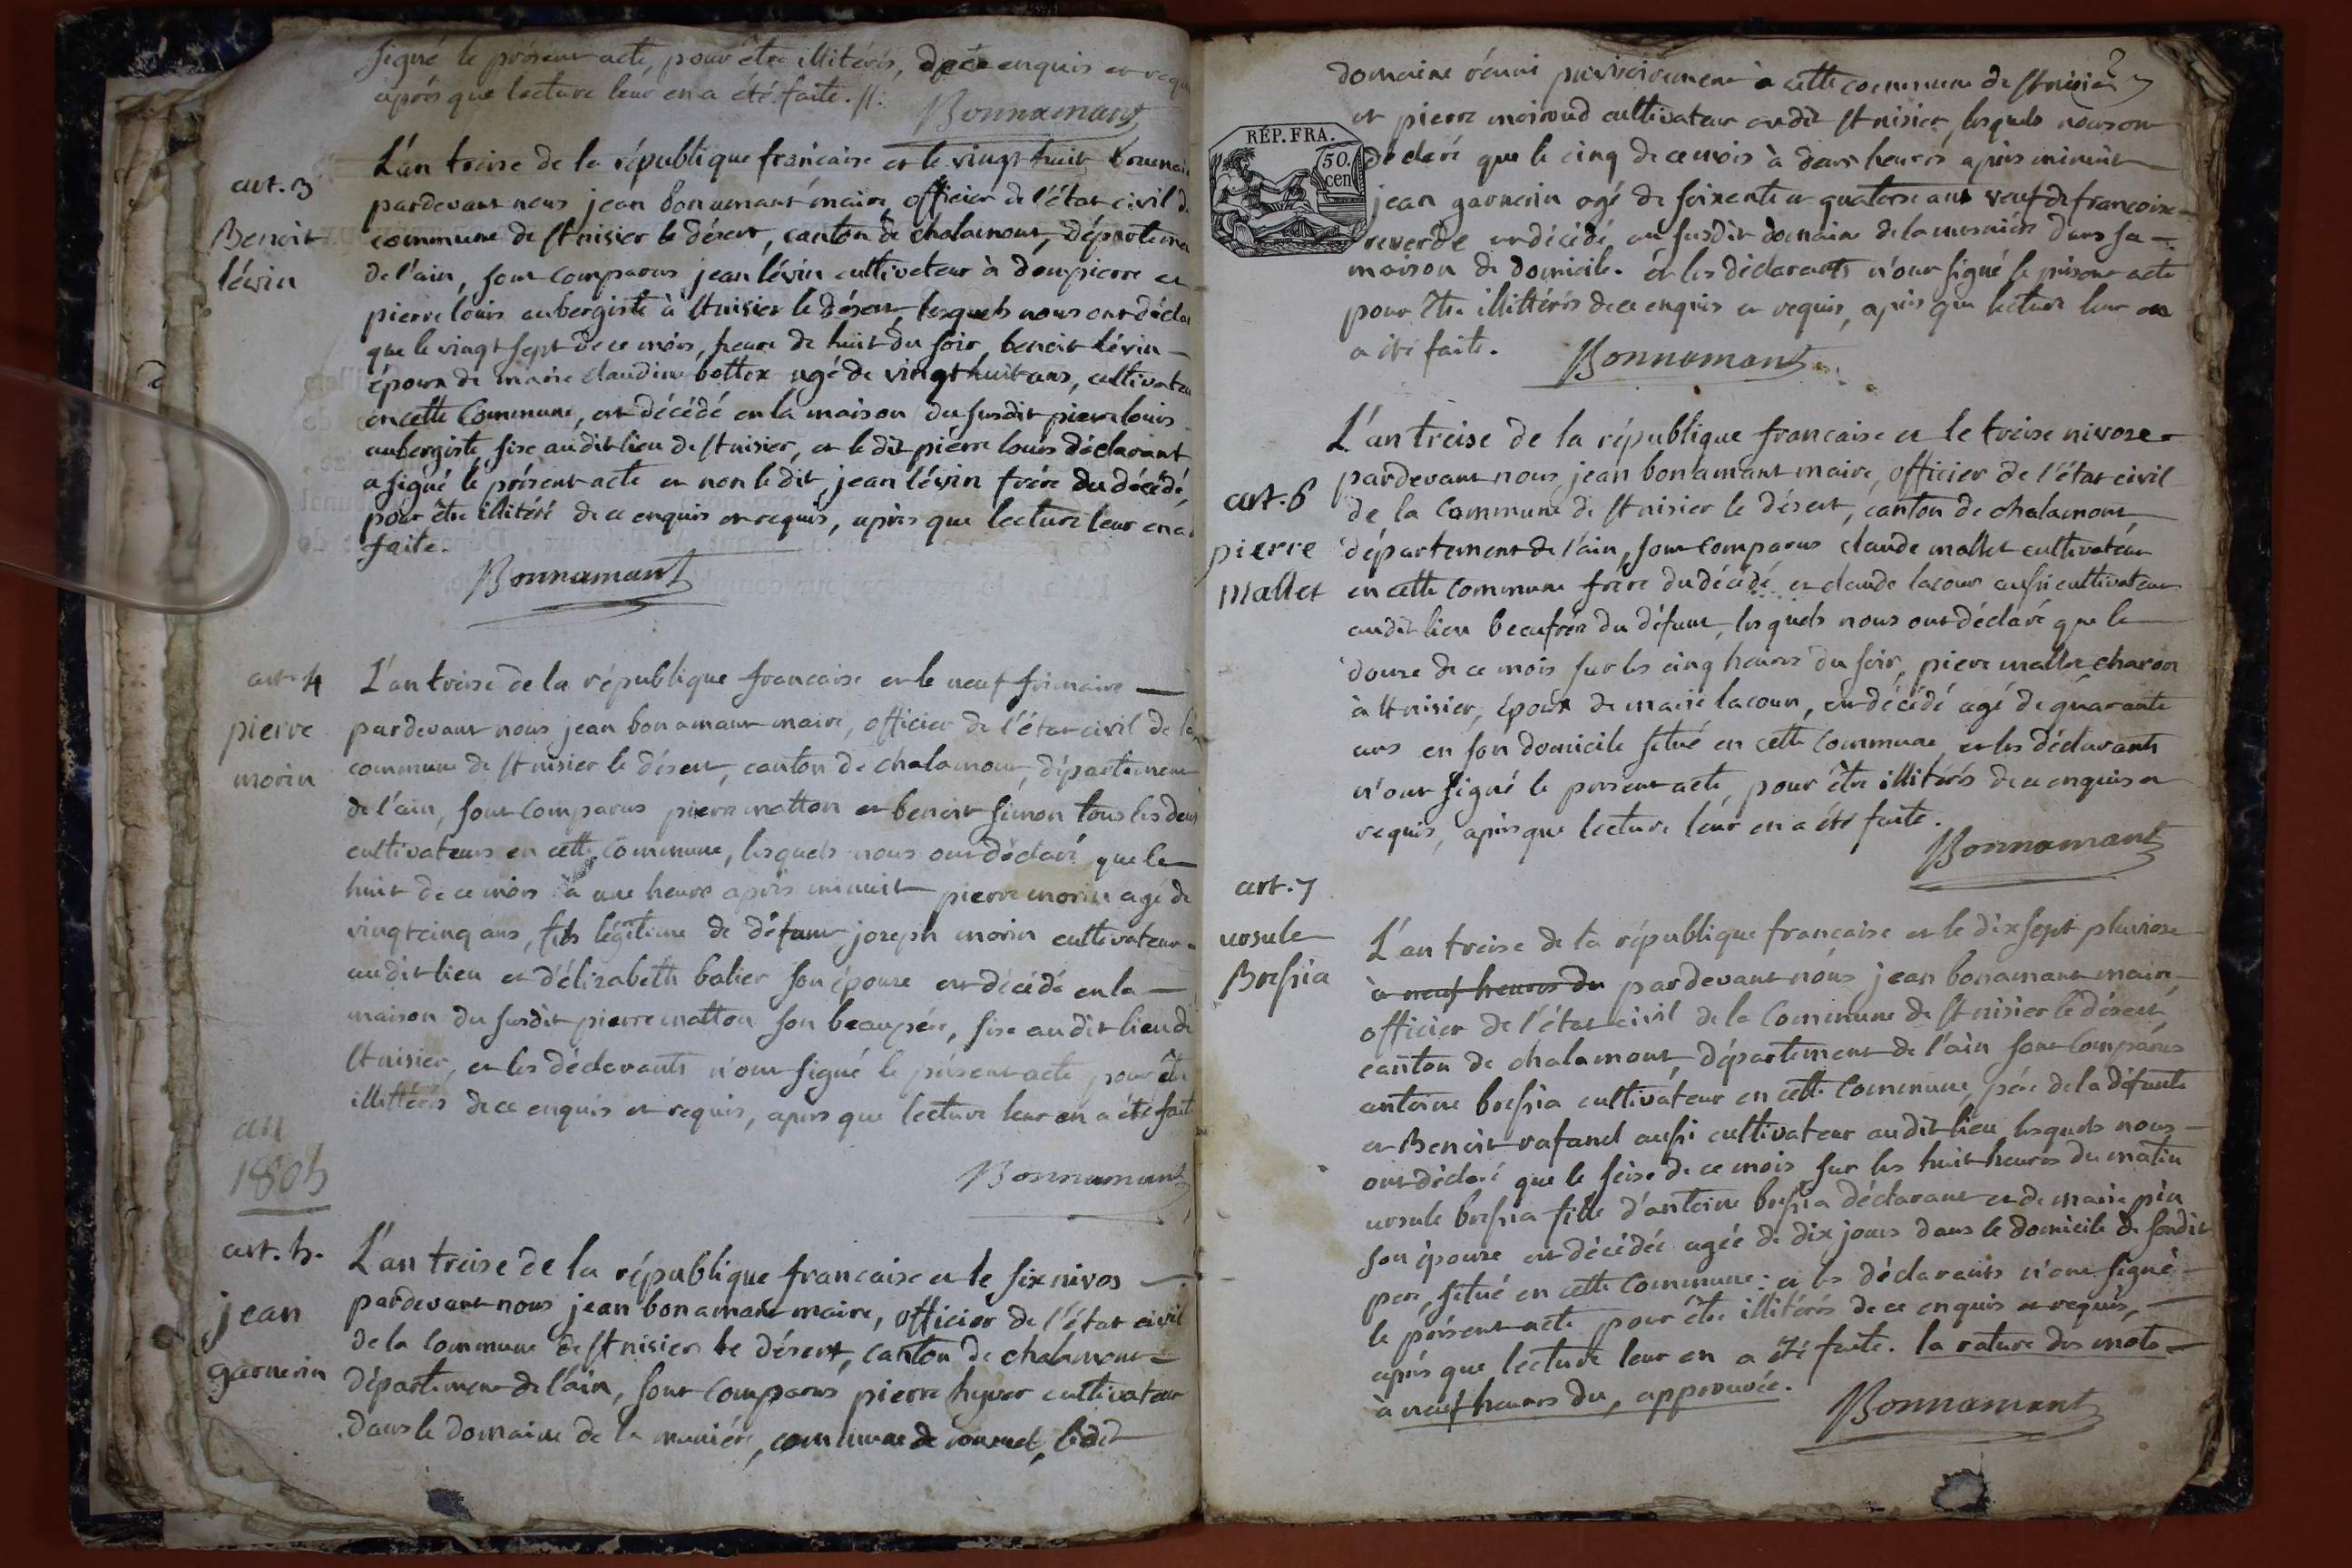 signé le présent acte, pour être illitérés, de ce enquis et requis
après que lecture leur en a été faite.
Bonnamant
art. 3
Benoit
lévin
L'an treise de la république francaise et le vingt huit brumaire
pardevant nous jean bonamant maire, officier de l'état civil de
commune de st nisier le désert, canton de chalamont, départeme
de l'ain, sont comparus jean lévin cultivateur à dompierre et
pierre louis aubergiste à st nisier le désert, lesquels nous ont déclaré
que le vingt sept de ce mois, heure de huit du soir, benoit lévin
époux de marie claudine bottex agé de vingt huit ans, cultivateur
en cette commune, est décédé en la maison du susdit pierre louis
aubergiste, sise au dit lieu de st nisier, et le dit pierre louis déclarant
a signé le présent acte et non le dit jean lévin frère du décédé,
pour être illitéré de ce enquis et requis, après que lecture leur en a
faite.
Bonnamant
art. 4
pierre
morin
L'an treise de la république francaise et le neuf frimaire
pardevant nous jean bonamant maire, officier de l'état civil de la
commune de st nisier le désert, canton de chalamont, département
de l'ain, sont comparus pierre matton et benoit simon tous les deux
cultivateurs en cette commune, lesquels nous ont déclaré que le
huit de ce mois à une heure après minuit pierre morin agé de
vingt cinq ans, fils légitime de défunt joseph morin cultivateur
au dit lieu et d'élizabeth balier son épouse est décédé en la
maison du susdit pierre matton son beaupère, sise au dit lieu de
st nisier, et les déclarants n'ont signé le présent acte, pour être
illittérés de ce enquis et requis, après que lecture leur en a été faite
Bonnamant
an
1805
art. 5.
jean
garnerin
L'an treise de la république francaise et le six nivos
pardevant nous jean bonamant maire, officier de l'état civil
de la commune de st nisier le désert, canton de chalamont
département de l'ain, sont comparus pierre hyver cultivateur
dans le domaine de la munière, commune de ledit
domaine réuni provisoirement à cette commune de st nisier
et pierre moiroud cultivateur au dit st nisier, lesquels nous ont
RÉP. FRA.
50.
cen
déclaré que le cinq de ce mois à deux heures après minuit
jean garnerin agé de soixente et quatorse ans veuf de francoise
reverde est décédé au susdit domaine de la munière dans sa
maison de domicile. et les déclarants n'ont signé le présent acte
pour être illittérés de ce enquis et requis, après que lecture leur en
a été faite.
Bonnamant
art. 6
pierre
mallet
L'an treise de la république francaise et le treise nivose
pardevant nous jean bonamant maire, officier de l'état civil
de la commune de st nisier le désert, canton de chalamont,
département de l'ain, sont comparus claude mallet cultivateur
en cette commune frère du décédé et claude lacour aussi cultivateur
au dit lieu beaufrère du défunt, lesquels nous ont déclaré que le
douse de ce mois sur les cinq heures du soir, pierre mallet charon
à st nisier, époux de marie lacour, est décédé agé de quarante
ans en son domicile situé en cette commune, et les déclarants
n'ont signé le present acte, pour être illitérés de ce enquis et
requis, après que lecture leur en a été faite.
Bonnamant
art. 7
ursule
Bressia
L'an treise de la république francaise et le dix sept pluviose
à neuf heures du pardevant nous jean bonamant maire
officier de l'état civil de la commune de st nisier le désert
canton de chalamont, département de l'ain sont comparus
antoine bressia cultivateur en cette commune, père de la défunte
et Benoit rafanel aussi cultivateur au dit lieu, lesquels nous
ont déclaré que le seise de ce mois sur les huit heures du matin
ursule bressia fille d'antoine bressia déclarant et de marie pin
son épouse est décédée agée de dix jours dans le domicile de sondit
pere, situé en cette commune : et les déclarants n'ont signé
le présent acte pour être illitérés de ce enquis et requis,
après que lecture leur en a été faite. la rature des mots
à neuf heures du, approuvée.
Bonnamant